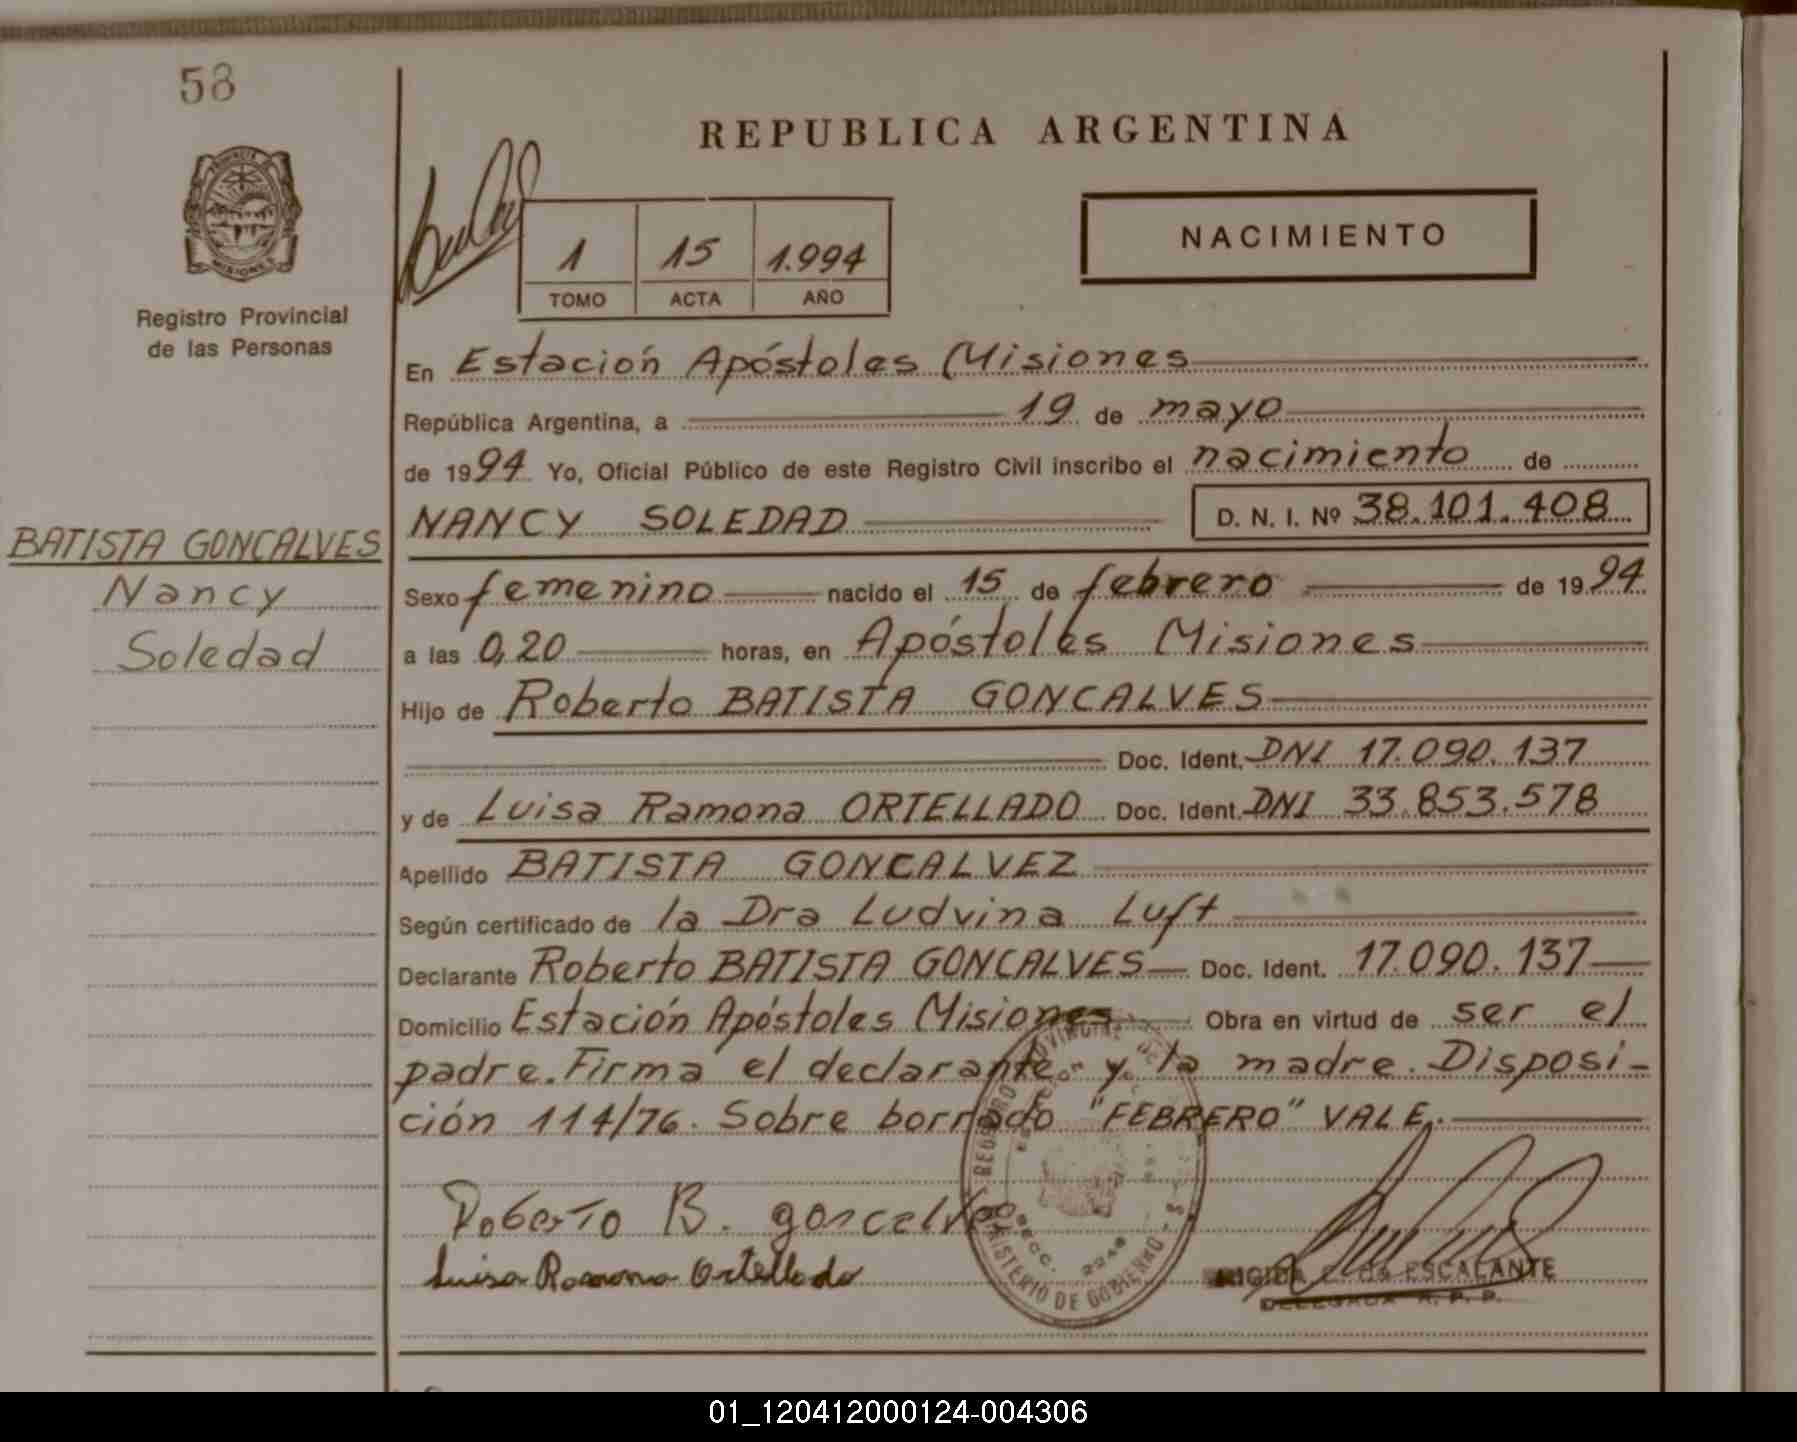 58
REPUBLICA ARGENTINA
PROVINCIA DE
MISIONES
Registro Provincial
de las Personas
1 15 1.994
TOMO ACTA AÑO
NACIMIENTO
En Estación Apóstoles Misiones
República Argentina, a 19 de mayo
de 1994 Yo, Oficial Público de este Registro Civil inscribo el nacimiento de
NANCY SOLEDAD D. N. I. Nº 38.101.408
BATISTA GONCALVES
Nancy
Soledad
Sexo femenino nacido el 15 de febrero de 1994
a las 0,20 horas, en Apóstoles Misiones
Hijo de Roberto BATISTA GONCALVES
Doc. Ident. DNI 17.090.137
y de Luisa Ramona ORTELLADO Doc. Ident. DNI 33.853.578
Apellido BATISTA GONCALVEZ
Según certificado de la Dra Ludvina Luft
Declarante Roberto BATISTA GONCALVES Doc. Ident. 17.090.137
Domicilio Estación Apóstoles Misiones Obra en virtud de ser el
padre. Firma el declarante y la madre. Disposi-
ción 114/76. Sobre borrado "FEBRERO" VALE.
Roberto B. goncelves
Luisa Ramona Ortellado
REGISTRO PROVINCIAL DE
MINISTERIO DE GOBIERNO
ESCALANTE
DELEGADA R. P. P.
01_120412000124-004306